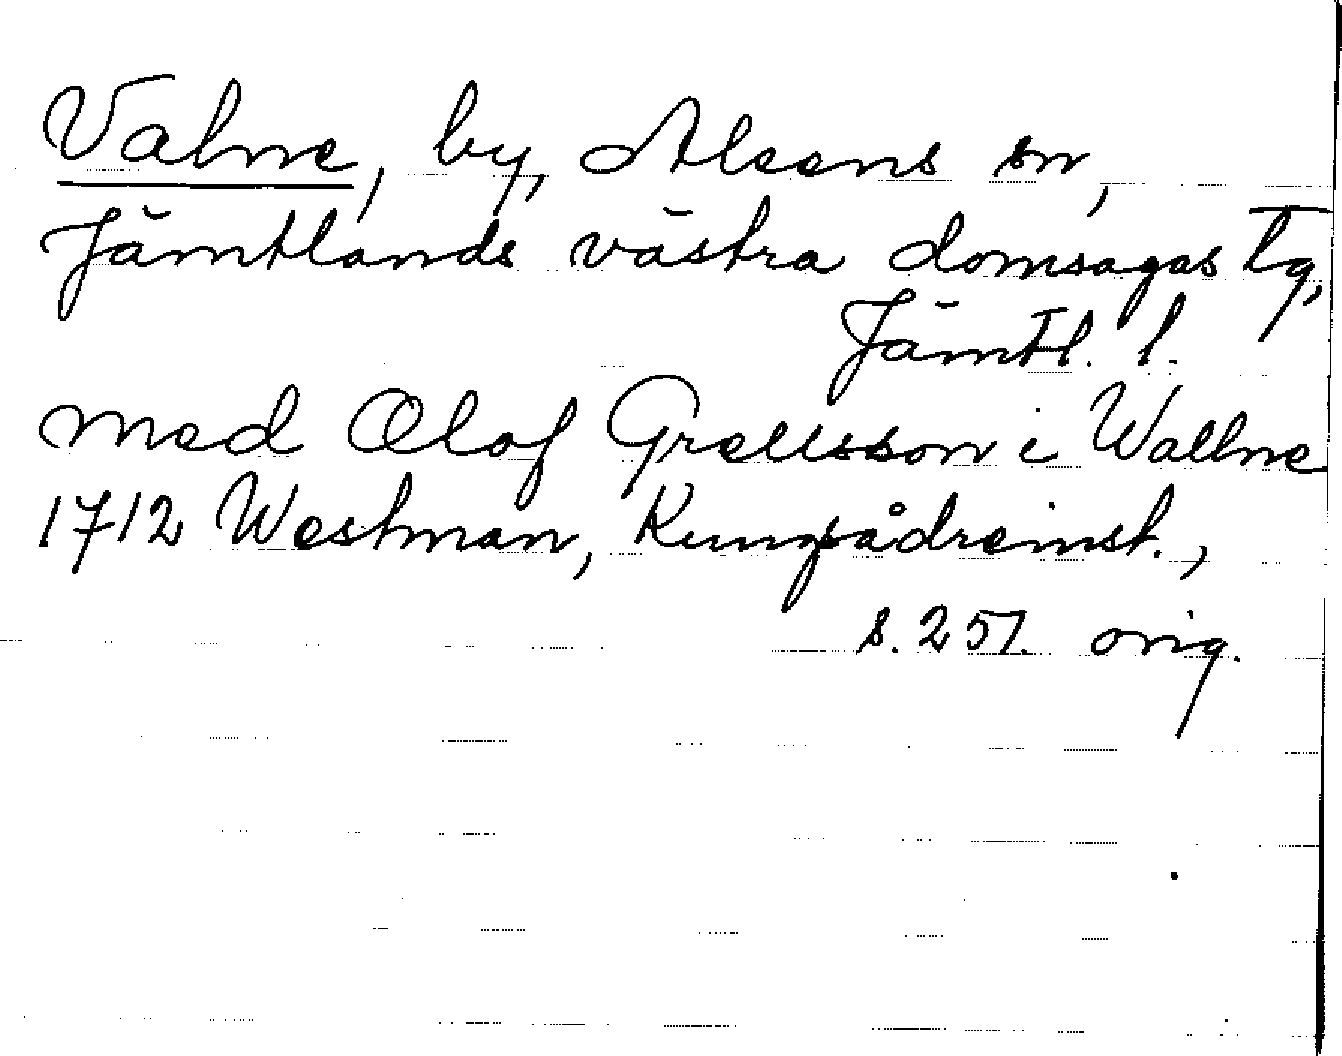 Valne, by, Alsens sn,
Jämtlands västra domsagas tg,
Jämtl. l.
med Olof Grellsson i Wallne
1712 Westman, Kungsådreinst.,
s. 257. orig.